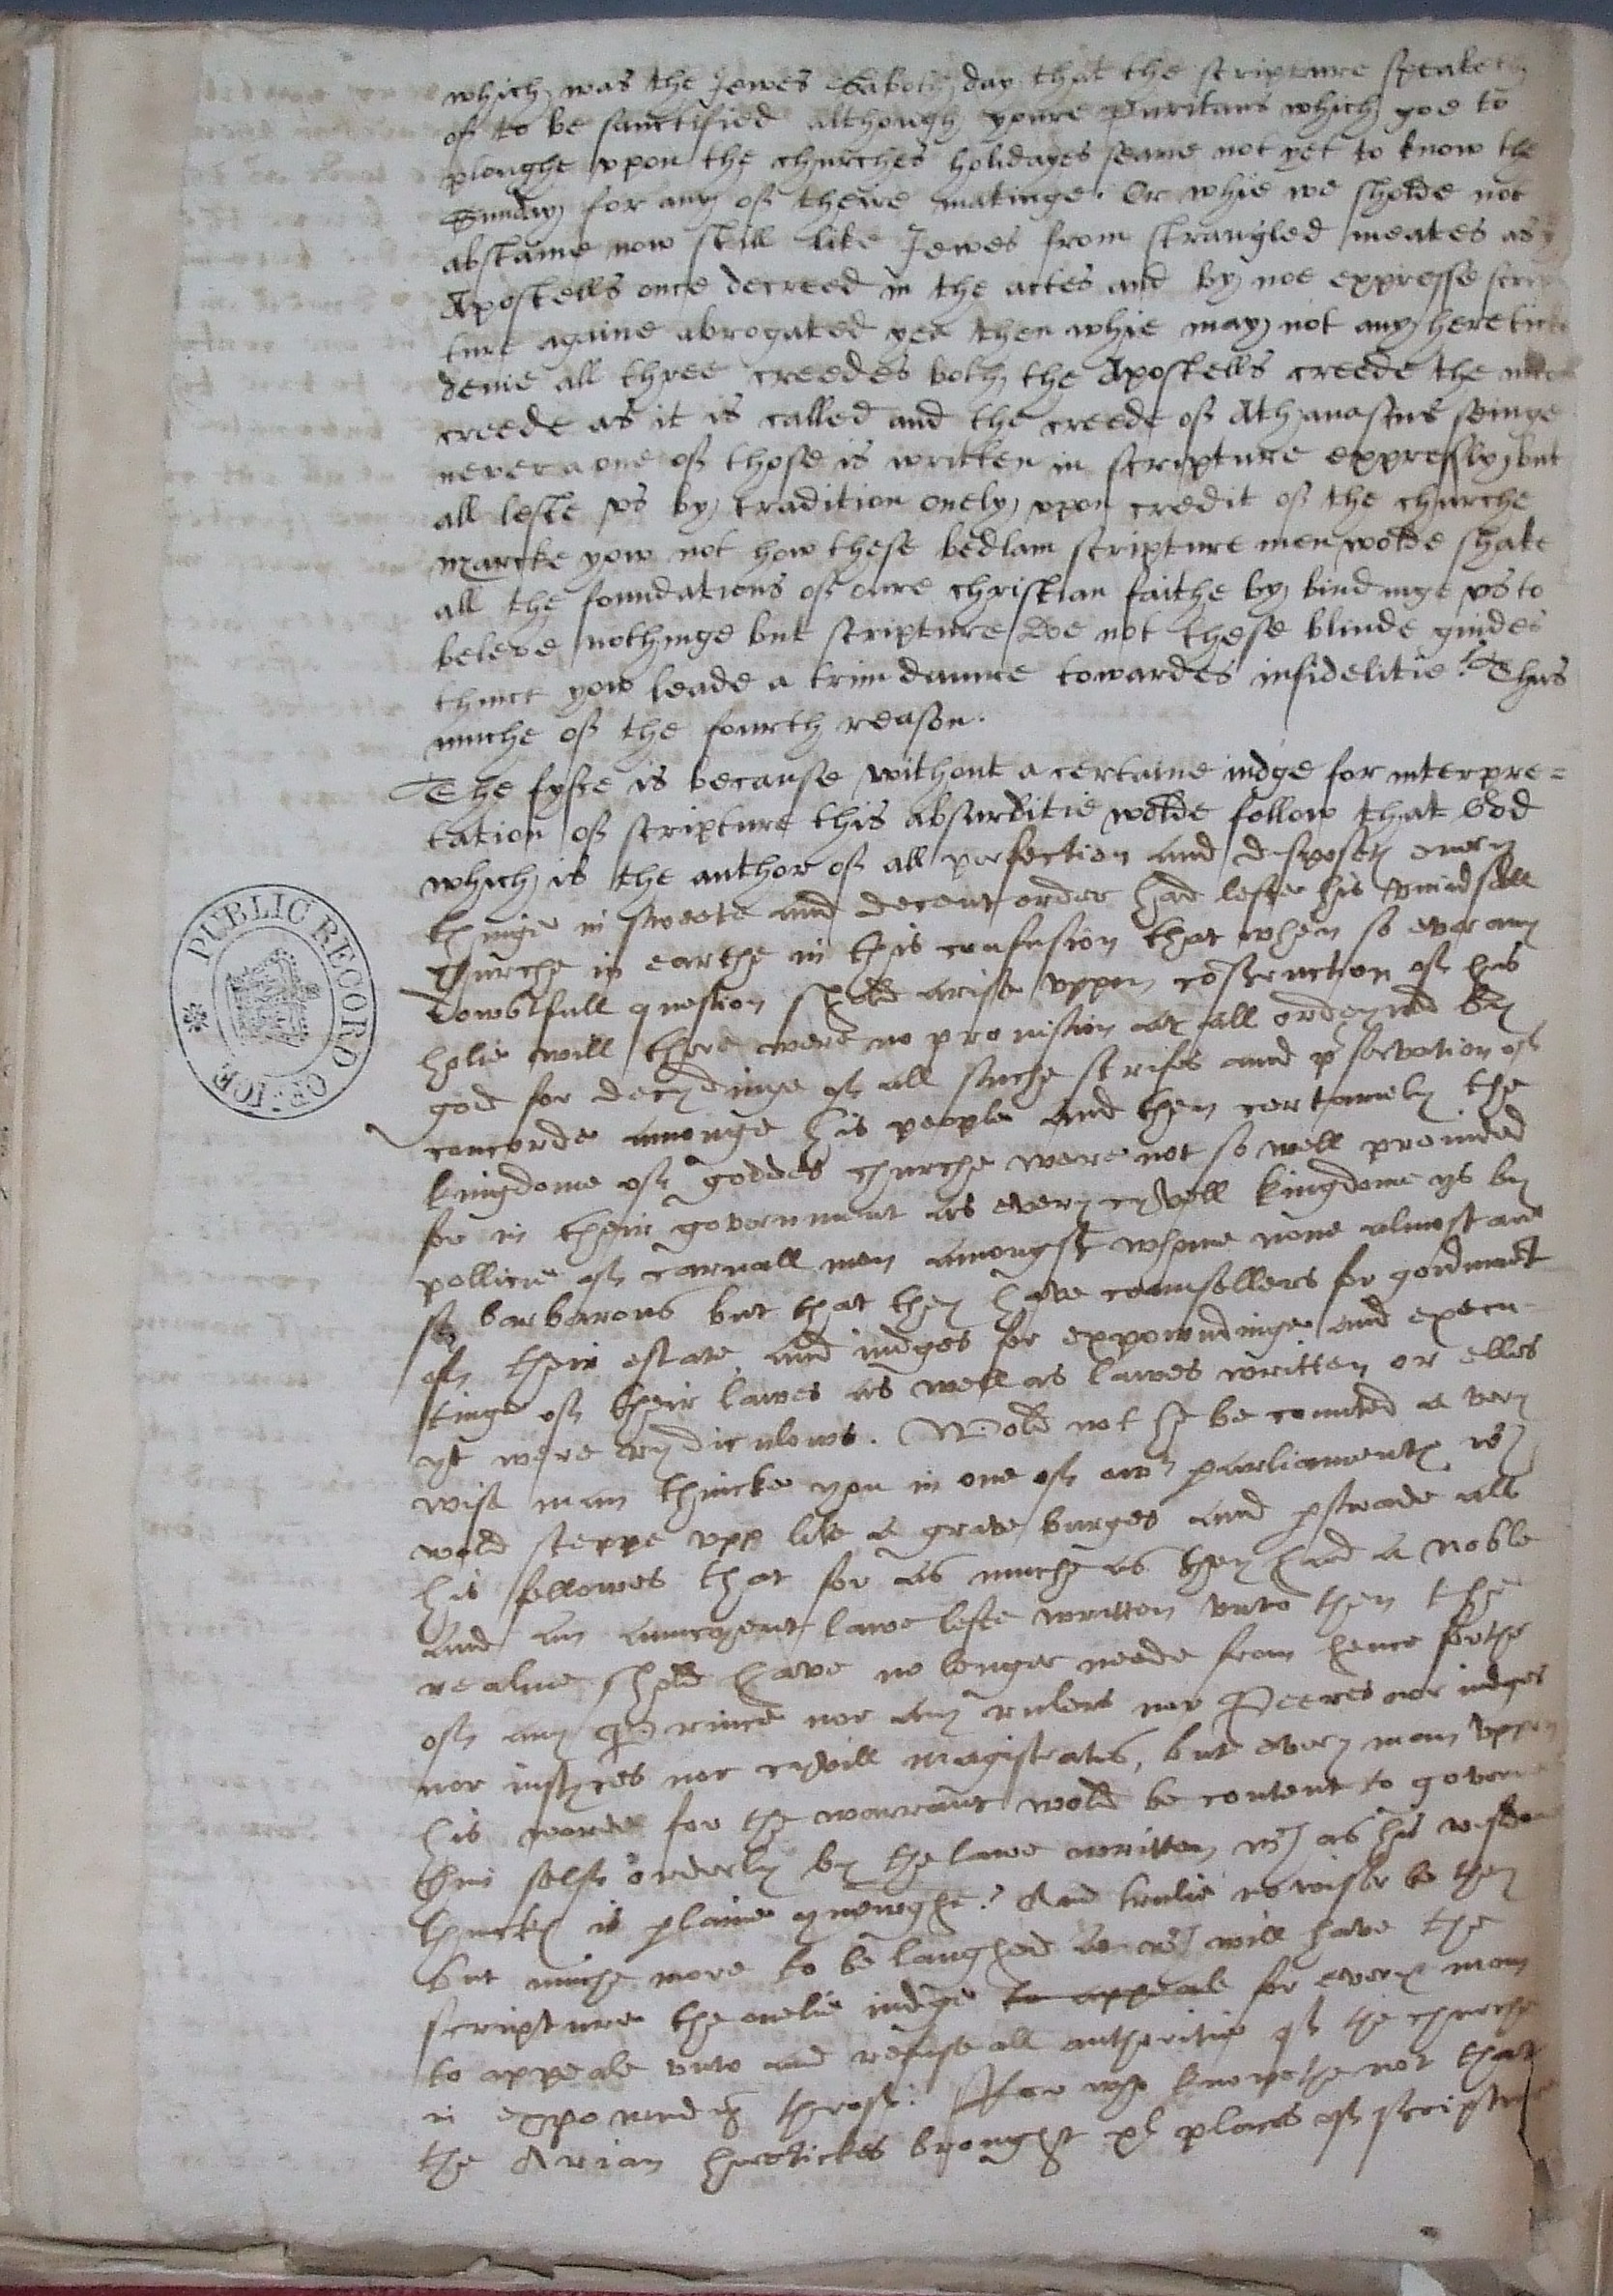 which was the Jewes Saboth day that the scripture speaketh
of to be sanctified although youre Puritans which goe to
ploughe upon the churches holidayes seame not yet to know the
Sunday for any of theire matinge. Or whie we sholde not
abstaine now still like Jewes from strangled meates as y
Apostells once decreed in the actes and by noe expresse scrip
ture againe abrogated yea then whie may not any heretick
denie all three creedes both the Apostells creede the nice
creede as it is called and the creede of Athanasius seinge
never a one of those is written in scripture expressly but
all lefte us by tradition onely upon credit of the churche
marcke yow not how these bedlam scripture men wolde shake
all the foundations of oure christian faithe by bindinge us to
beleve nothinge but scripture Doe not these blinde guides
thincke yow leade a trim daunce towardes infidelitie? Thus
muche of the fourth reason.
The fyfte is because without a certaine iudge for interpre=
tation of scripture this absurditie wolde follow that God
which is the author of all perfection and disposeth every
thinge in sweete and decent order had lefte his
churche in earthe in this confusion that when so ever any
dowbtfull question shold arise uppon costruction of his
holie will there were no provision at all ordeyned by
god for decydinge of all suche strifes and pservation of
concorde amonge his people and then certainely the
kingdome of goddes churche were not so well provided
for in their government as every cyvell kingdome ys by
pollicie of carnall men amongst whome none almost are
so barbarous but that they have counsellers for goverment
of their estate and iudges for expowndinge and execu-
tinge of their lawes as well as lawes written or elles
yt were rydiculows. Wold not he be counted a very
wise man thincke you in one of owr parliamentes wch
wold steppe upp like a grave burges and pswade all
his fellowes that for as muche as they had a noble
and an auncyent lawe lefte written unto them the
realme shold have no longer neede from hence forthe
of any Prince nor any rulers nor Peeres nor iudges
nor iustyces nor cyvill magistrates, but every man uppon
his worde for the warrant wold be content to governe
him self orderly by the lawe written wch as his wisdom
thincketh is plaine ynowghe? And trulie no wiser be they
but muche more to be laughed at wch will have the
scripture the onelie iudge to appeale for every man
to appeale unto and refuse all authoritie of the churche
in expownding therof. For who knowethe not that
the Arian heretickes brought xl places of scripture